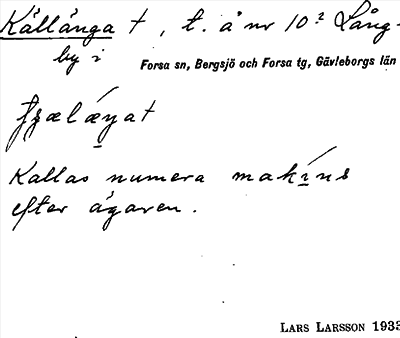 Källänga †, t. å nr 10² Lång-
by i Forsa sn, Bergsjö och Forsa tg, Gävleborgs län
Kallas numera makíns
efter ägaren.
LARS LARSSON 1933